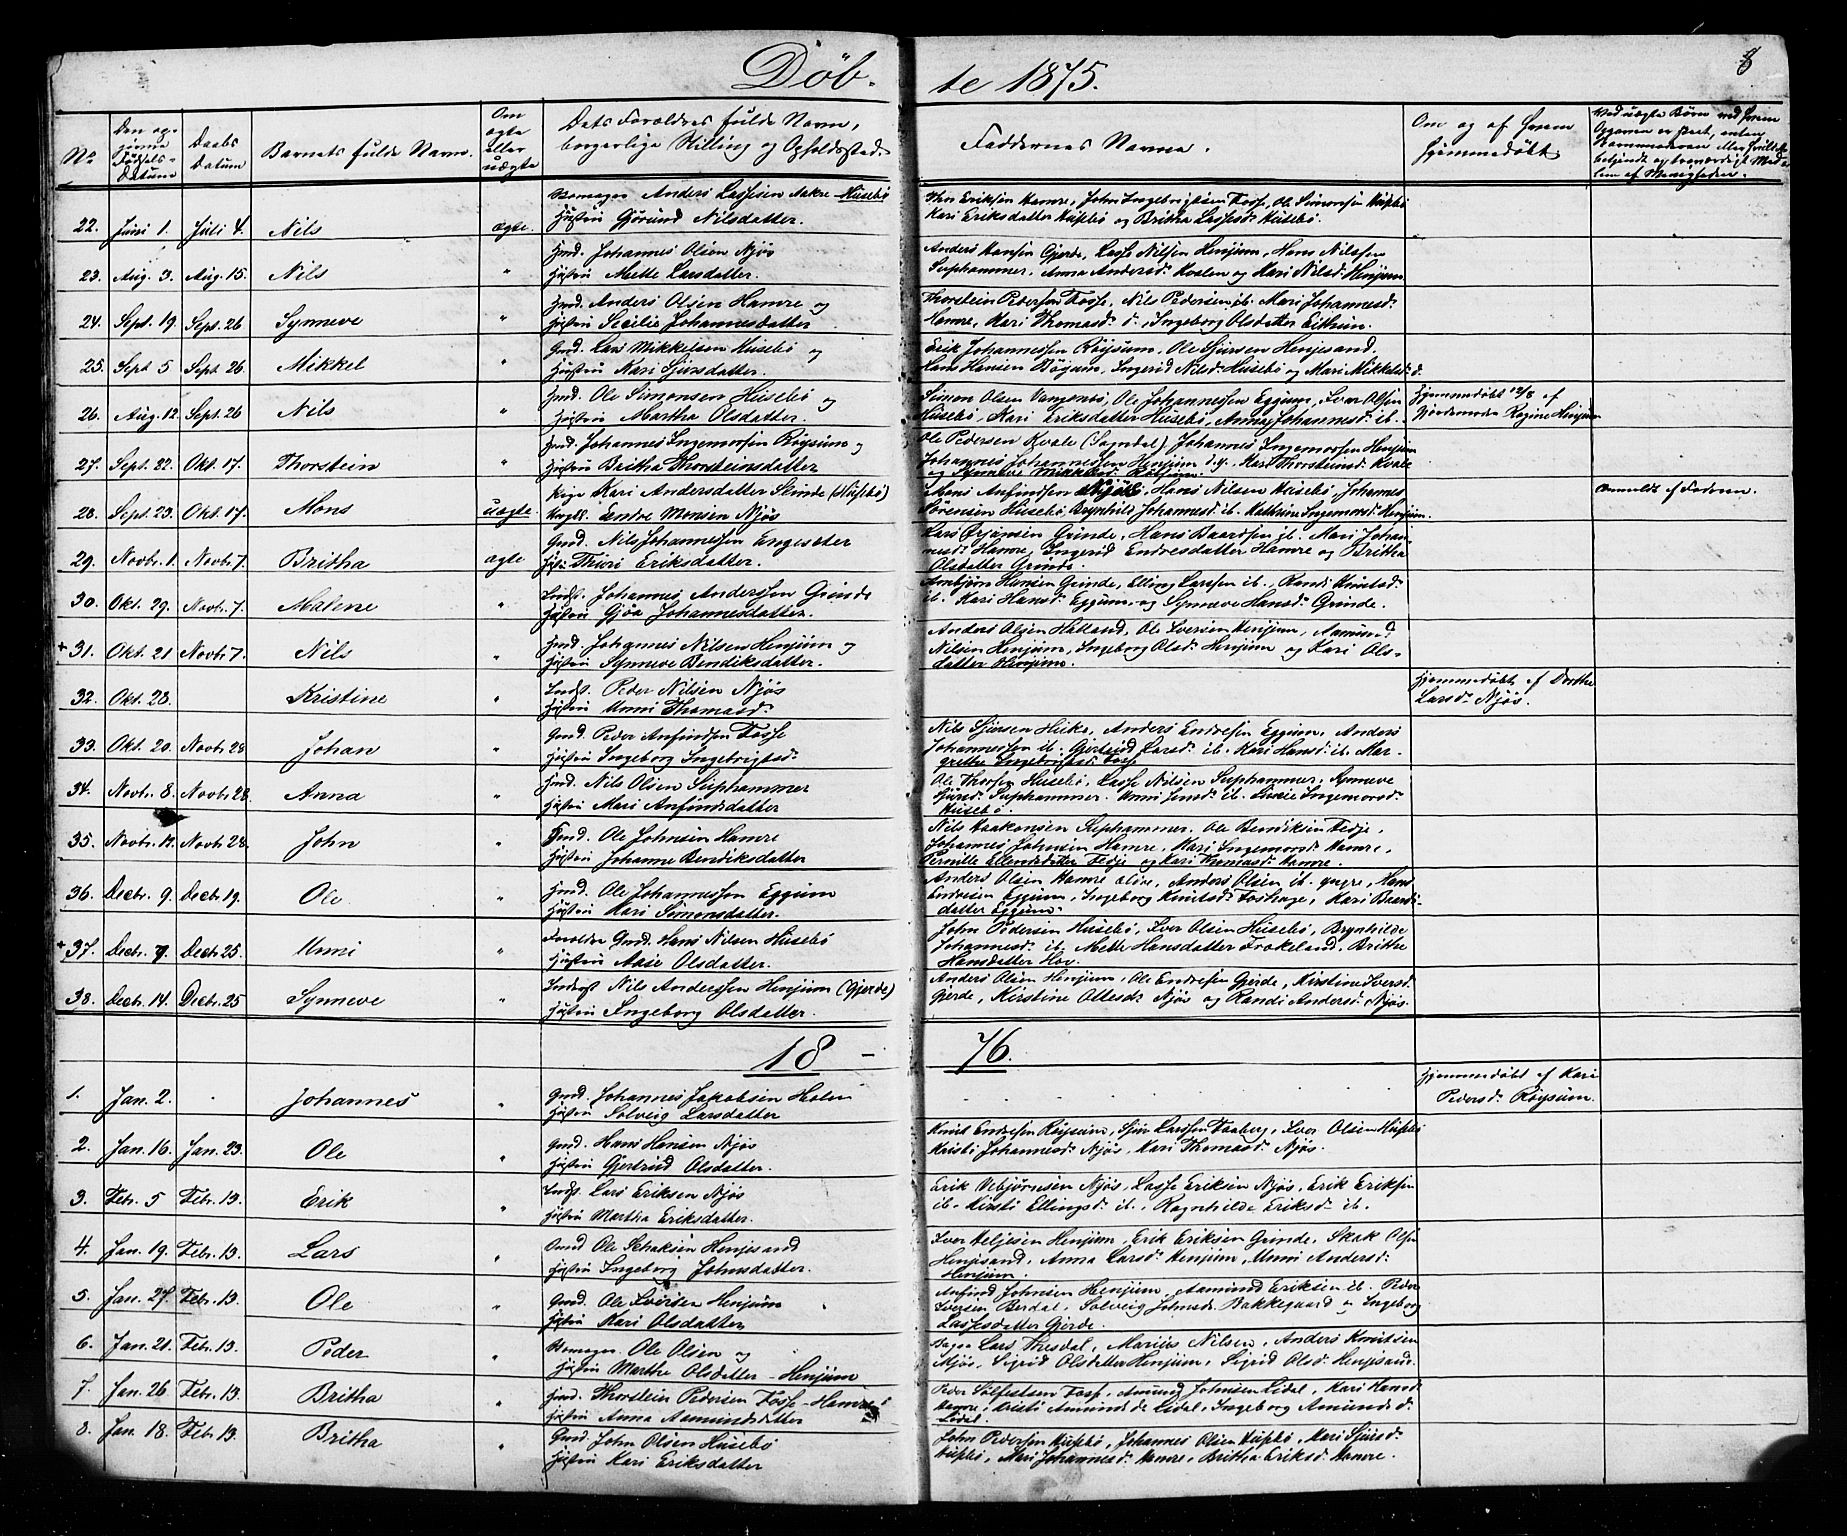 Döb-
te 1875.
8
No
Den op-
givne
Födsels-
Datum
Daabs
Datum
Barnets fulde Navn.
Om
ægte
eller
uægte
Dets Forældres fulde Navn,
borgerlige Stilling og Opholdssted.
Faddernes Navne.
Om og af hvem
hjemmedöbt.
22. Juni 1. Juli 4. Nils ægte.
Anders Lassesen Aakre Husebö
Hustru Gjörund Nilsdatter.
Kari Eriksdatter Husebö og Britha Lassesd. Husebö.
23. Aug. 3. Aug. 15. Nils "
Gmd. Johannes Olsen Njös
Hustru Mette Larsdatter.
Anders Hansen Gjerde, Lasse Nilsen Henjum, Hans Nilssen
Suphammer, Anna Andersd. Kvalen og Mari Nilsd. Henjum
24. Sept. 19 Sept. 26 Synneve "
Gmd. Anders Olsen Hamre og
Hustru Secilie Johannesdatter
Thorstein Pedersen Fosse, Nils Pedersen ib. Mari Johannesd.
Hamre, Kari Thomasd. d., Ingeborg Olsdatter Eithun.
25. Sept 5 Sept. 26 Mikkel "
Gmd. Lars Mikkelsen Husebö og
Hustru Mari Sjursdatter.
Erik Johannessen Röysum, Ole Sjursen Henjesand.
Lars Hansen Böyum, Ingerid Nilsd. Husebö og Mari Mikkelsd. d.
26. Aug. 12. Sept. 26 Nils "
Gmd. Ole Simonsen Husebö og
Hustru Martha Olsdatter.
Simon Olsen Vangsnes, Ole Johannessen Eggum, Iver Olsen
Husebö, Kari Eriksdatter Husebö, Anna Johannesd. ib.
Hjemmedöbt 12/8 af
Gjordemoder Regine Henjum
27. Sept. 22. Okt. 17. Thorstein "
Gmd. Johannes Ingemorsen Röysum og
Hustru Britha Thorsteinsdatter
Ole Pedersen Kvale (Sogndal) Johannes Ingemorsen Henjum
Johannes Johannessen Henjum d.y. Mari Thorsteinsd. Kvale
28. Sept. 23. Okt. 17. Mons uægte.
Pige Kari Andersdatter Skinde (Husebö)
Ungk. Endre Monsen Njös
Mons Anfindsen Njös, Hans Nilsen Husebö Johannes
Sörensen Husebö Brynhild Johannesd. ib. Kathrine Ingemorsd. Henjum.
Anmeldt af Faderen.
29. Novbr. 1. Novbr. 7. Britha ægte
Gmd. Nils Johannessen Engesæter
Hust. Thuri Eriksdatter.
Lars Örjansen Grinde, Hans Baardsen ib. Mari Johan-
nesd. Hamre, Ingerid Endresdatter Hamre og Britha
Olsdatter Grinde.
30. Okt. 29. Novbr. 7. Malene "
Johannes Anderssen Grinde
Hustru Gjöa Johannesdatter.
Arnbjörn Hansen Grinde, Elling Larssen ib., Randi Knutsd.
ib. Kari Hansd. Eggum, og Synneve Hansd. Grinde.
+31. Okt. 21 Novbr. 7. Nils "
Gmd. Johannes Nilsen Henjum og
Hustru Synneve Bendiksdatter.
Anders Olsen Hatland, Ole Iversen Henjum, Aamund
Nilsen Henjum, Ingeborg Olsd. Henjum og Kari Ols-
datter Henjum.
32. Okt. 28. Kristine "
Peder Nilsen Njös
Hustru Unni Thomasd.
Hjemmedöbt af Dorthe
Larsd. Njös.
33. Okt. 20. Novbr. 28 Johan "
Gmd. Peder Anfindsen Fosse
Hustru Ingeborg Ingebrigtsd.
Nils Sjursen Huke, Anders Endresen Eggum, Anders
Johannessen ib. Gjertrud Larsd. ib. Kari Hansd. ib. Mar-
grethe Ingebrigtsd. Fosse
34. Novbr. 8. Novbr. 28. Anna "
Gmd. Nils Olsen Suphammer
Hustru Mari Anfindsdatter
Ole Thorsen Husebö, Lasse Nilsen Suphammer, Synneve
Husebö.
35. Novbr. 12. Novbr. 28. John "
Gmd. Ole Johnsen Hamre
Hustru Johanne Bendiksdatter
Nils Haakonsen Suphammer. Ole Bendiksen Fedje,
Johannes Johnsen Hamre, Mari Ingemorsd. Hamre,
Pernille Ellendsdatter Fedje og Kari Thomasd. Hamre.
36. Decbr. 9. Decbr. 19. Ole "
Gmd. Ole Johannessen Eggum
Hustru Kari Simonsdatter.
Anders Olsen Hamre eldre, Anders Olsen ib. yngre, Hans
Endresen Eggum, Ingeborg Knutsd. Foshage, Kari Baards-
datter Eggum.
+37. Decbr. 9. Decbr. 25. Unni "
Gmd. Hans Nilsen Husebö
Hustru Aase Olsdatter.
John Pedersen Husebö, Iver Olsen Husebö, Brynhilde
Johannesd. ib. Mette Hansdatter Trökeland, Brithe
Hansdatter Hov.
38. Decbr. 14. Decbr. 25 Synneve "
Nils Anderssen Henjum (Gjerde)
Hustru Ingeborg Olsdatter.
Anders Olsen Henjum, Ole Endresen Gjerde, Kirstine Iversd.
Gjerde, Kirstine Ottesd. Njös og Randi Andersd. Njös.
18 - 76.
1. Jan. 2. Johannes "
Gmd. Johannes Jakobsen Holm
Hustru Solveig Larsdatter
Hjemmedöbt af Kari
Pedersd. Röysum.
2. Jan. 16. Jan. 23. Ole "
Gmd. Hans Hansen Njös
Hustru Gjertrud Olsdatter.
Knut Endresen Röysum, Sjur Larssen Faaberg, Iver Olsen Husebö
Kristi Johannesd. Njös, Kari Thomasd. Njös.
3. Febr. 5 Febr. 13. Erik "
Lars Eriksen Njös
Hustru Martha Eriksdatter.
Erik Vebjörnsen Njös, Lasse Eriksen Njös, Erik Eriksen
ib. Kirsti Ellingsd. ib., Ragnhilde Eriksd. ib.
4. Jan. 19. Febr. 13. Lars "
Gmd Ole Schaksen Henjesand
Hustru Ingeborg Johnsdatter.
Iver Heljesen Henjum, Erik Eriksen Grinde, Skak Olsen
Henjesand, Anna Larsd. Henjum, Unni Andersd.
Henjum.
5. Jan. 27. Febr. 13. Ole "
Gmd. Ole Iversen Henjum
Hustru Kari Olsdatter
Anfind Johnsen Henjum, Aamund Eriksen ib. Peder
Iversen Berdal, Solveig Johnsd. Bakkegaard og Ingeborg
Lassesdatter Gjerde.
6. Jan. 21. Febr. 13. Peder "
Ole Olsen og
Hustru Martha Olsdatter - Henjum
Lars Thesdal, Marius Nilsen, Anders Knutsen
Njös, Sigrid Olsdatter Henjum, Sigrid Olsd. Henjesand.
7. Jan. 26. Febr. 13. Britha "
Gmd. Thorstein Pedersen Fosse - Hamre
Hustru Anna Aamundsdatter
Peder Solfestsen Fosse, Amund Johnsen Lidal, Kari Hansd.
Hamre, Kristi Amundsd. Lidal, Ingeborg Amundsd.
Lidal.
8. Jan. 18. Febr 13. Britha "
Gmd. John Olsen Husebö
Hustru Kari Eriksdatter
John Pedersen Husebö, Johannes Olsen Husebö, Mari Sjursd.
Husebö, Mari Johannesd. Hamre, Britha Eriksd. Hamre.